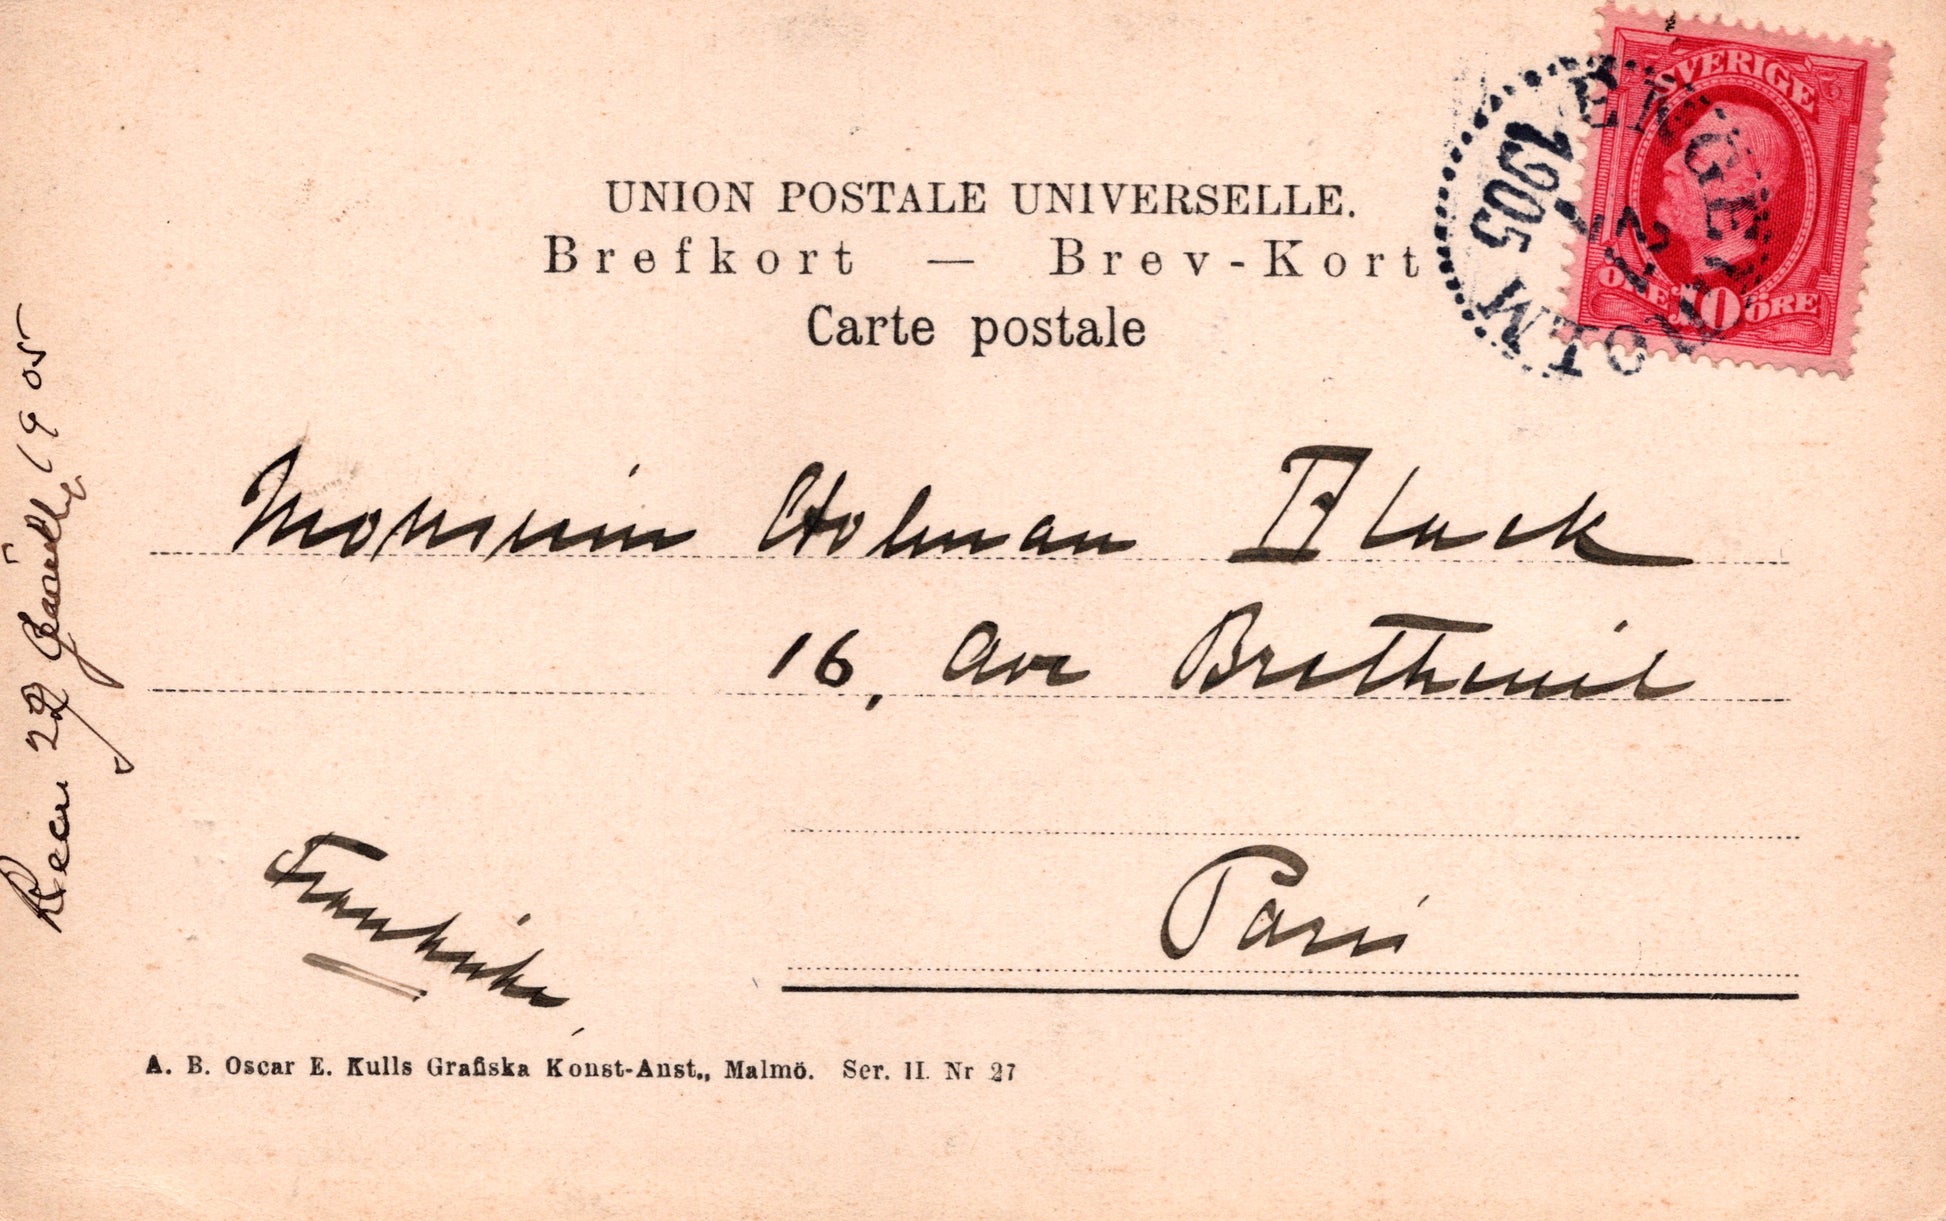 SVERIGE
ÖRE 10 ÖRE
ENGELHOLM
27 1
1905
UNION POSTALE UNIVERSELLE.
Brefkort — Brev-Kort
Carte postale
Monsieur Holman Black
16, Ave Bretheuil
Paris
Frankrike
A. B. Oscar E. Kulls Grafiska Konst-Anst., Malmö. Ser. II. Nr 27
1905